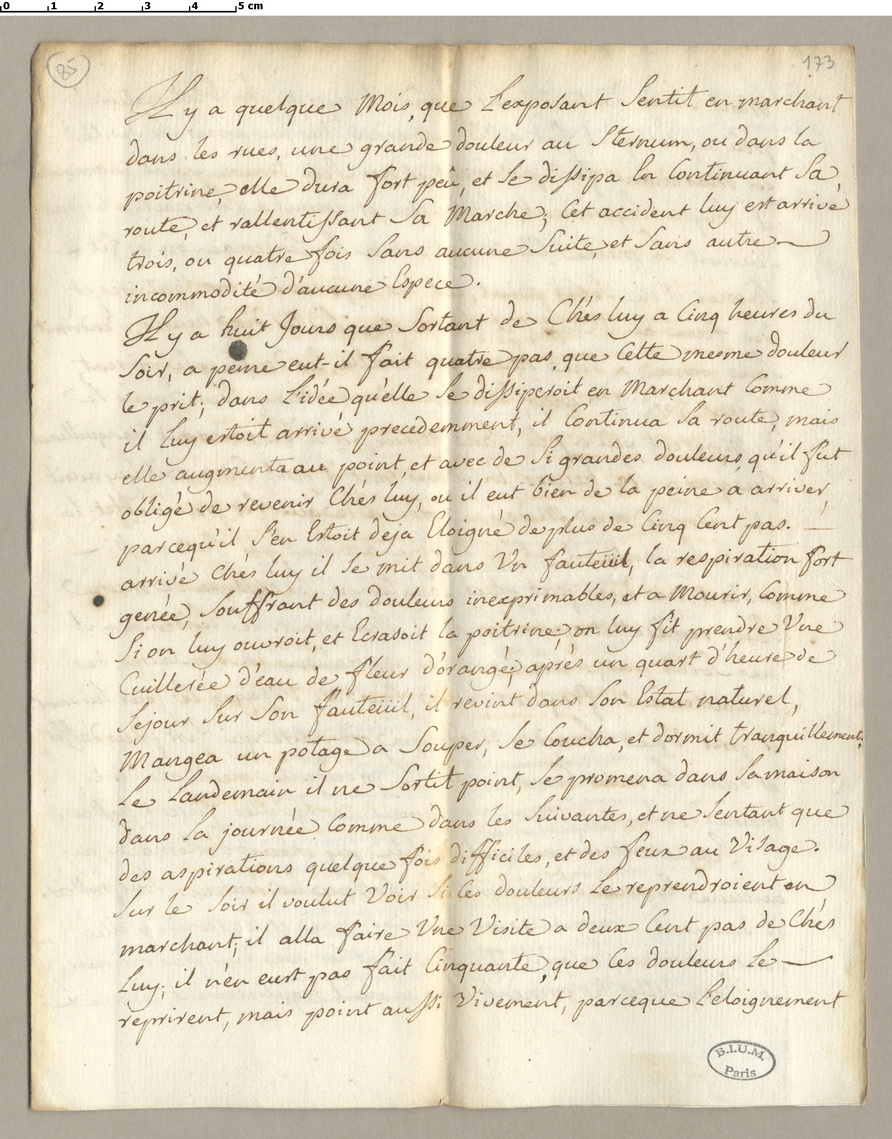 0 1 2 3 4 5 cm
85
173
Il y a quelque Mois, que L'exposant Sentit en marchant
dans les rues, une grande douleur au Sternum, ou dans la
poitrine, elle dura fort peû, et se dissipa En Continuant Sa
route, et rallentissant Sa Marche; Cet accident luy est arrivé
trois, ou quatre fois Sans aucune Suite, et Sans autre
incommodité d'aucune Espece.
Il y a huit Jours que Sortant de Chés luy a Cinq heures du
Soir, a peine eut-il fait quatre pas, que Cette mesme douleur
le prit; dans L'idée qu'elle Se dissiperoit en Marchant Comme
il Luy estoit arrivé precedemment, il Continua Sa route, mais
elle augmenta au point, et avec de Si grandes douleurs, qu'il fut
obligé de revenir Chés luy, ou il eut bien de la peine a arriver,
parcequ'il S'en Estoit deja Eloigné de plus de Cinq Cent pas.
arrivé Chés luy il Se mit dans Vn fauteüil, la respiration fort
genée, Souffrant des douleurs inexprimables, et a Mourir, Comme
Si on luy ouvroit, et Ecrasoit la poitrine: on luy fit prendre Vne
Cuillerée d'eau de fleur d'orange; aprés un quart d'heure de
Sejour Sur Son fauteüil, il revint dans Son Estat naturel,
Mangea un potage a Souper, Se Coucha, et dormit tranquillement;
Le Landemain il ne Sortit point, Se promena dans Sa maison
dans La journée Comme dans les Suivantes, et ne Sentant que
des aspirations quelque fois difficiles, et des feux au Visage.
Sur le Soir il voulut Voir Si Ces douleurs Le reprendroient en
marchant; il alla faire Vne Visite a deux Cent pas de Chés
Luy; il n'en eust pas fait Cinquante, que Ces douleurs Le
reprirent, mais point aussi Vivement, parceque L'eloignement
B.I.U.M.
Paris